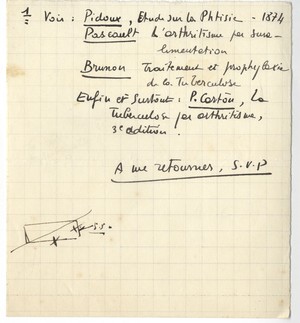 1 Voir : Pidoux, Etude sur la Phtisie - 1874
Pascault L'arthritisme par sura-
limentation
Brunon Traitement et prophylaxie
de la Tuberculose
Enfin et Surtout : P. Carton, La
Tuberculose par arthritisme,
3e édition.
A me retourner, S.V.P